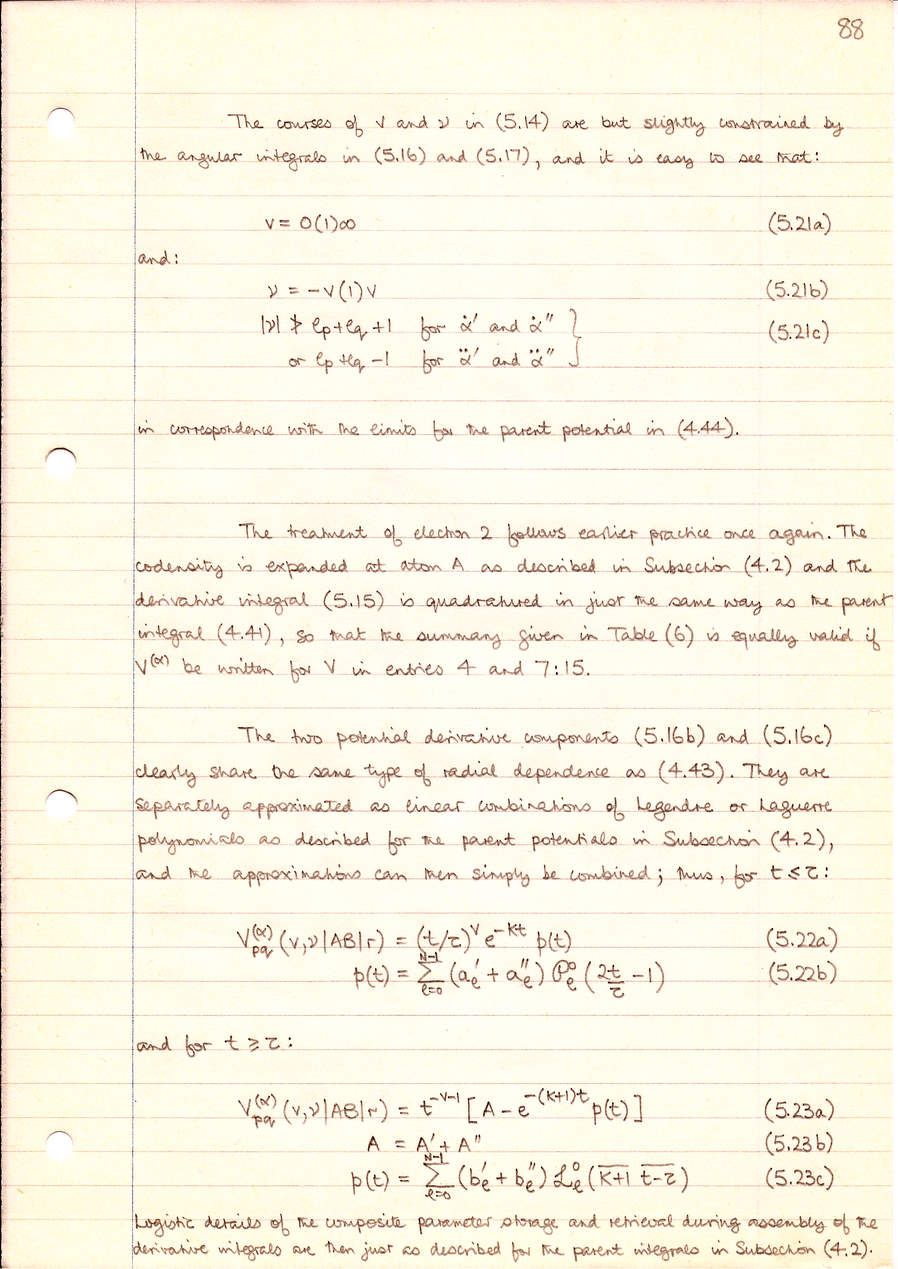 88
The courses of v and ν in (5.14) are but slightly constrained by
the angular integrals in (5.16) and (5.17), and it is easy to see that:
v = 0(1)∞ (5.21a)
and:
ν = -v(1)v (5.21b)
|ν| ≯ ℓp+ℓq+1 for α̇′ and α̇″ } (5.21c)
or ℓp+ℓq-1 for α̈′ and α̈″
in correspondence with the limits for the parent potential in (4.44).
The treatment of electron 2 follows earlier practice once again. The
codensity is expanded at atom A as described in Subsection (4.2) and the
derivative integral (5.15) is quadratured in just the same way as the parent
integral (4.41), so that the summary given in Table (6) is equally valid if
V⁽ᵅ⁾ be written for V in entries 4 and 7:15.
The two potential derivative components (5.16b) and (5.16c)
clearly share the same type of radial dependence as (4.43). They are
separately approximated as linear combinations of Legendre or Laguerre
polynomials as described for the parent potentials in Subsection (4.2),
and the approximations can then simply be combined; thus, for t ≤ τ:
V_pq^(α) (v,ν|AB|r) = (t/τ)^v e^-Kt p(t) (5.22a)
p(t) = Σ_{ℓ=0}^{N-1} (a′_ℓ + a″_ℓ) 𝒫°_ℓ (2t/τ - 1) (5.22b)
and for t ≥ τ:
V_pq^(α) (v,ν|AB|r) = t^-v-1 [A - e^-(K+1)t p(t)] (5.23a)
A = A′ + A″ (5.23b)
p(t) = Σ_{ℓ=0}^{N-1} (b′_ℓ + b″_ℓ) ℒ°_ℓ (K̅+̅1̅ t̅-̅τ̅) (5.23c)
Logistic details of the composite parameter storage and retrieval during assembly of the
derivative integrals are then just as described for the parent integrals in Subsection (4.2).